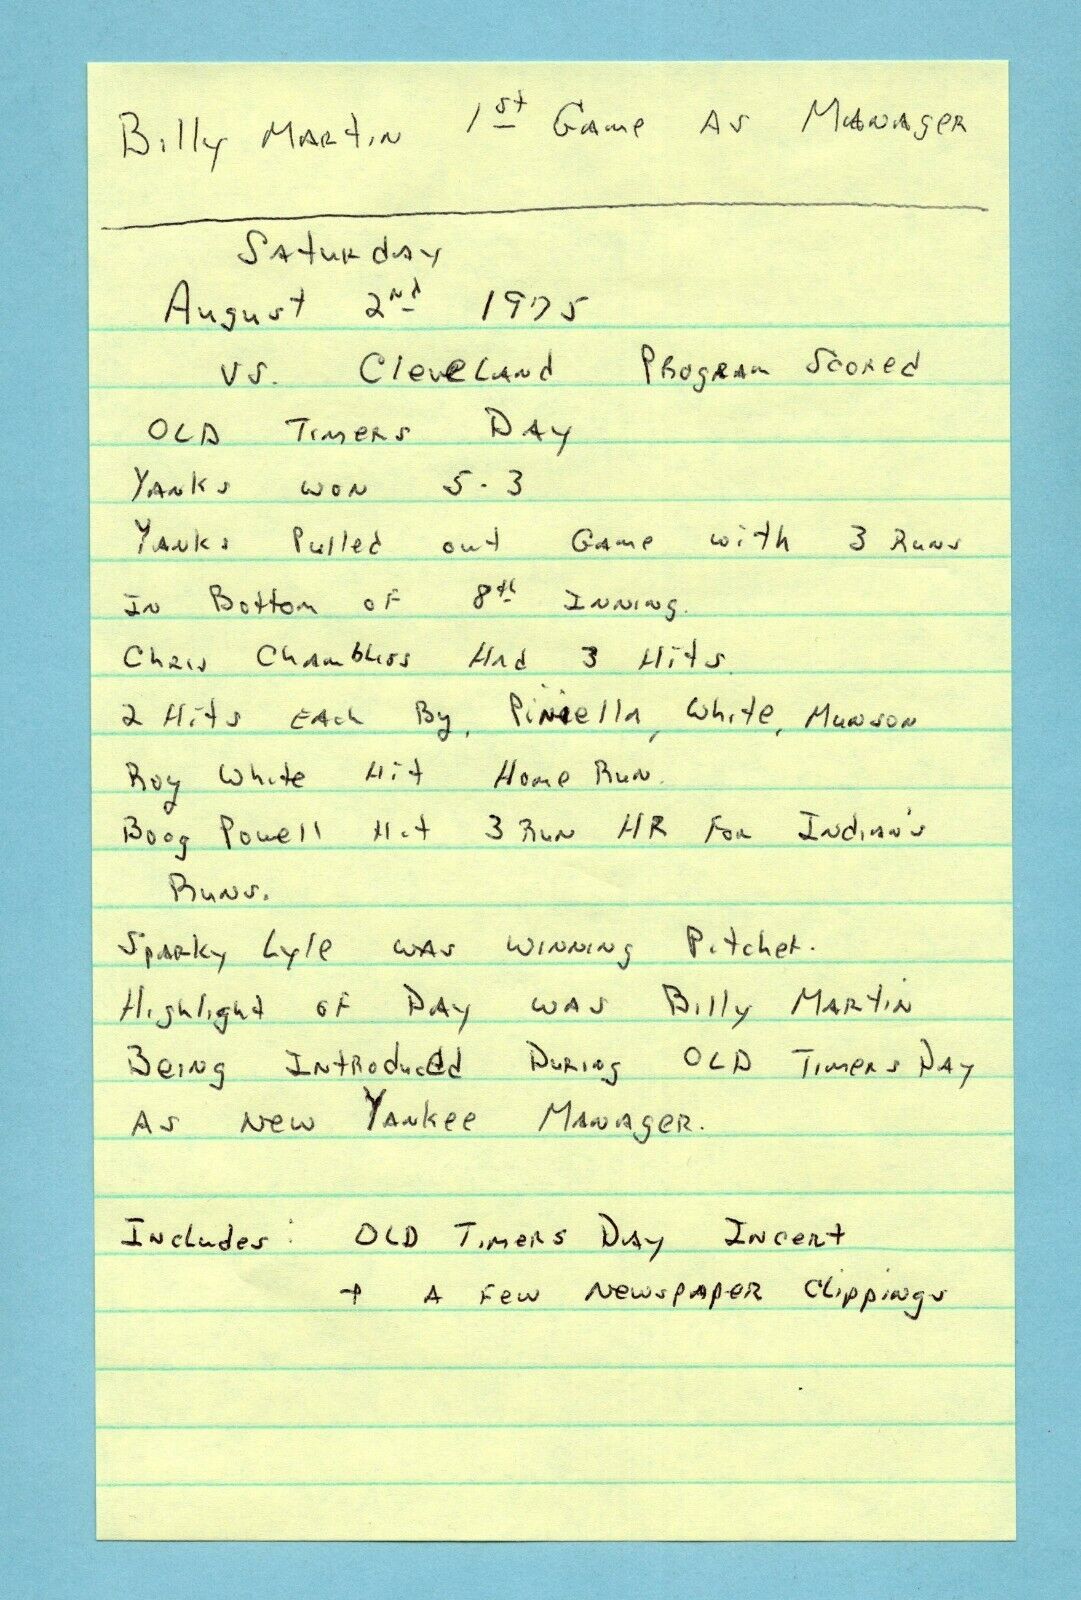 Billy Martin 1st Game As Manager
Saturday
August 2nd 1975
vs. Cleveland Program Scored
Old Timers Day
Yanks won 5-3
Yanks Pulled out Game with 3 Runs
In Bottom of 8th Inning.
Chris Chambliss Had 3 Hits.
2 Hits Each By, Piniella, White, Munson
Roy White Hit Home Run.
Boog Powell Hit 3 Run HR For Indian's
Runs.
Sparky Lyle was winning Pitcher.
Highlight of Day was Billy Martin
Being Introduced During Old Timers Day
As New Yankee Manager.
Includes: Old Timers Day Incert
+ A Few Newspaper Clippings